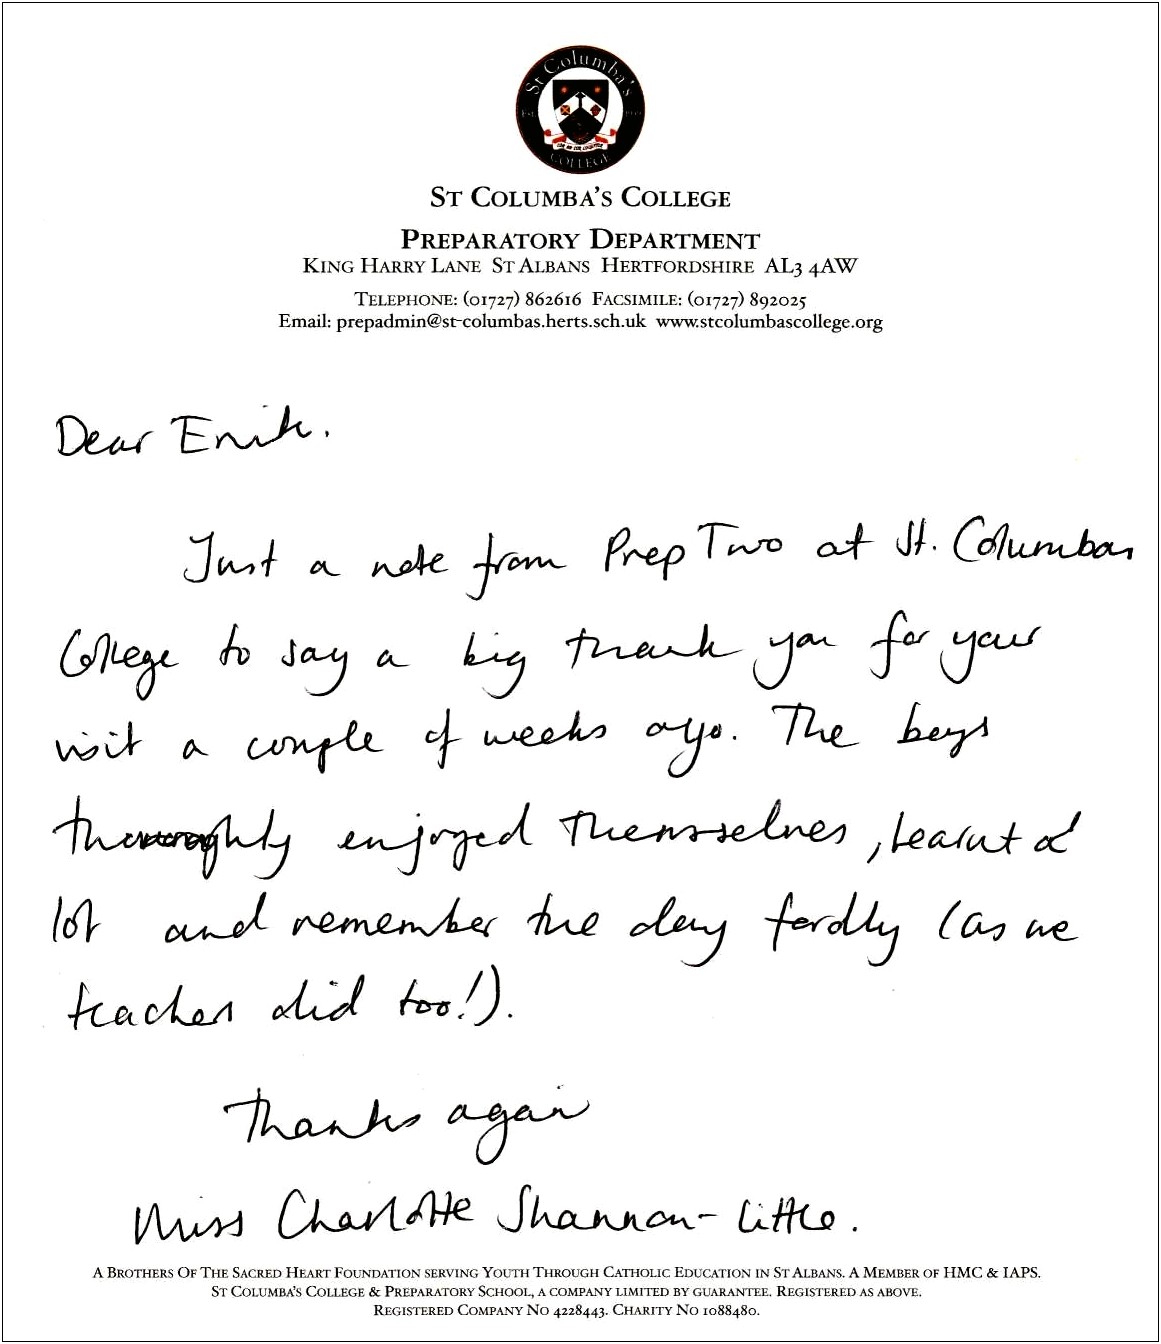 St Columba's
COLLEGE
ST COLUMBA'S COLLEGE
PREPARATORY DEPARTMENT
KING HARRY LANE ST ALBANS HERTFORDSHIRE AL3 4AW
TELEPHONE: (01727) 862616 FACSIMILE: (01727) 892025
Email: prepadmin@st-columbas.herts.sch.uk www.stcolumbascollege.org
Dear
Just a note from Prep Two at St. Columbas
College to say a big thank you for your
visit a couple of weeks ago. The boys
thoroughly enjoyed themsselves, learnt a
lot and remember the day fondly (as we
teachers did too!).
Thanks again
Miss Charlotte Shannon-Little.
A BROTHERS OF THE SACRED HEART FOUNDATION SERVING YOUTH THROUGH CATHOLIC EDUCATION IN ST ALBANS. A MEMBER OF HMC & IAPS.
ST COLUMBA'S COLLEGE & PREPARATORY SCHOOL, A COMPANY LIMITED BY GUARANTEE. REGISTERED AS ABOVE.
REGISTERED COMPANY NO 4228443. CHARITY NO 1088480.